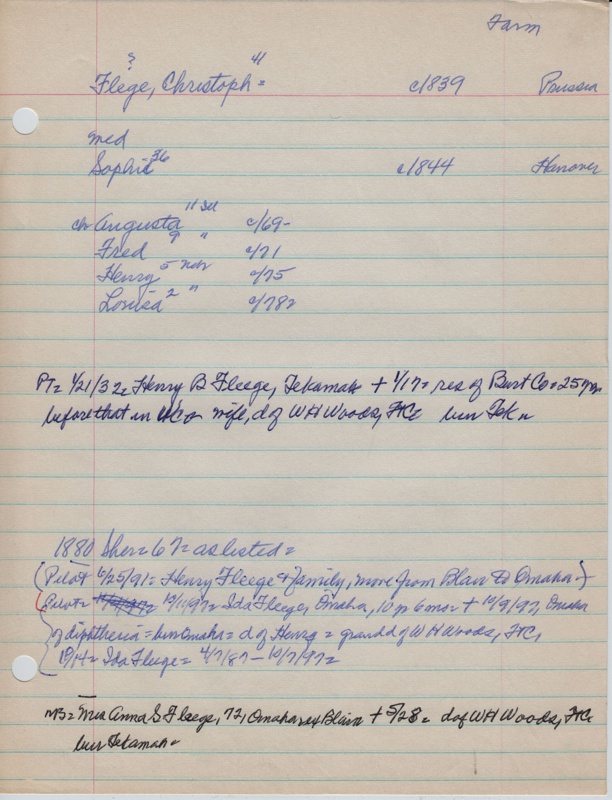 Farm
? 41
Flege, Christoph = c1839 Prussia
med
Sophie 36 c1844 Hanover
ch Augusta 11 Ill c/69-
Fred 9 " c/71
Henry 5 Nebr c/75
Louisa 2 " c/78=
PT= 1/21/32= Henry B Fleege, Tekamah + 1/17= res of Burt Co= 25 yrs
before that in WC= wife, d of WH Woods, FtC bur Tek=
1880 Sher= 67= as listed=
(Pilot 6/25/91= Henry Fleege & family, move from Blair to Omaha=)
(Pilot= 10/11/97= Ida Fleege, Omaha, 10 yr 6 mo= + 10/9/97, Omaha
of diphtheria= bur Omaha= d of Henry= grandd of WH Woods, FtC,
10/14= Ida Fleege= 4/7/87 - 10/7/97=
Mrs Anna S Fleege, 72, Omaha, ex Blair + 5/28= d of WH Woods, FtC
bur Tekamah=